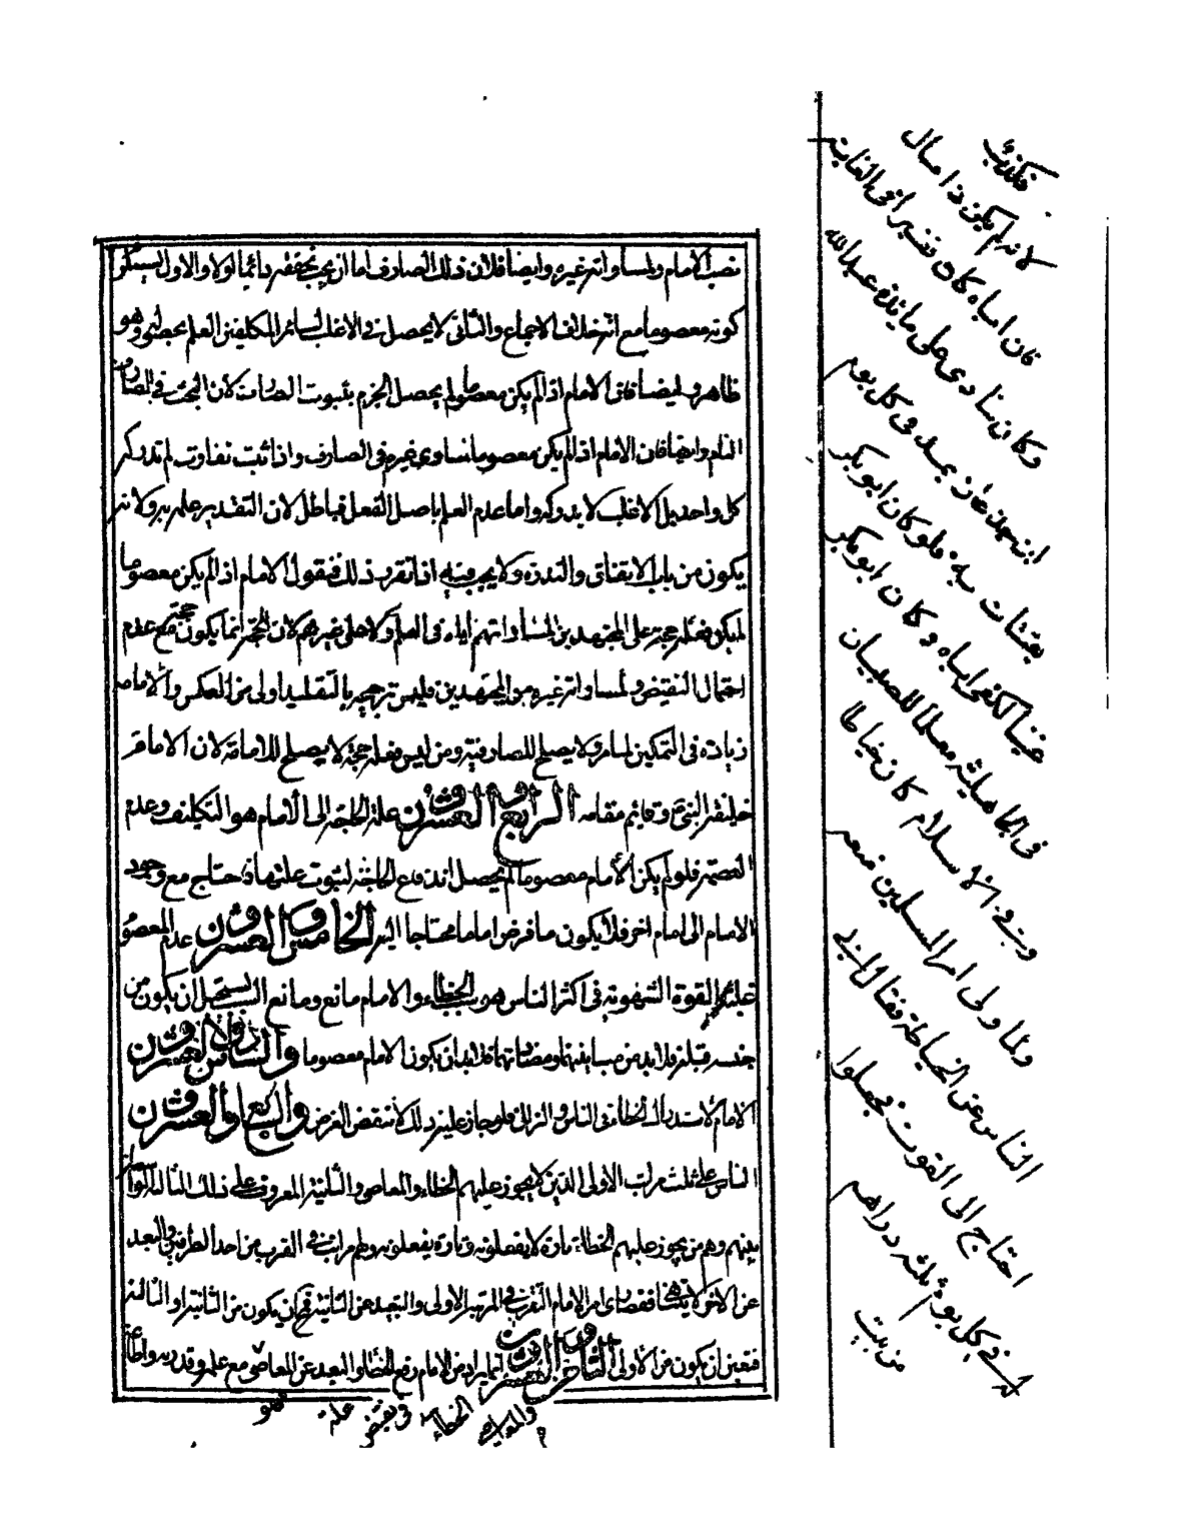 نصب الامام ولمساواته غيره وايضا فلان ذلك الصارف اما ان يجب تحققه دائما اولا والاول يستلزم
كونه معصوما مع انه خلاف الاجماع والثانى لا يحصل فى الاغلب لسائر المكلفين العلم وهو
ظاهر وايضا فان الامام اذا لم يكن معصوما لم يحصل الجزم بثبوت الصارف لان البحث فى الصارف
التام وايضا فان الامام اذا لم يكن معصوما ساوى غيره فى الصارف واذا ثبت تفاوت لم تدركه
كل واحد بل الاغلب لا يدركه واما عدم العلم باصل الفعل فباطل لان التقدير علمه به ولانه
يكون من باب الاتفاق والندرة ولا يجب فيه اذا تقرر ذلك فنقول الامام اذا لم يكن معصوما
لم يكن فعله حجة على المجتهدين لمساواتهم اياه فى العلم ولا على غيرهم لان الحجة انما يكون حجة مع عدم
احتمال النقيض ولمساواته غيره من المجتهدين فليس ترجيحه بالتقليد اولى من العكس والامامة
زيادة فى التمكين لما مر ولا يصلح للصارفية ومن ليس فعله حجة لا يصلح للامامة لان الامام
خليفة النبى وقايم مقامه الرابع والعشرون علة الحاجة الى الامام هو التكليف وعدم
العصمة فلو لم يكن الامام معصوما لم يحصل اندفاع الحاجة لثبوت علتها فاحتاج مع وجود
الامام الى امام اخر فلا يكون ما فرض اماما محتاجا اليه الخامس والعشرون عدم المعصوم
القوة الشهوية فى اكثر الناس هو سبب الخطاء والامام مانع ومانع السبب يستحيل ان يكون من
جنسه فلا بد من مباينتها ومضادتها فلا بد ان يكون الامام معصوما والسادس والعشرون
الامام لاستدراك الخطاء فى الناس والزلل فلو جاز عليه ذلك لانتقض الغرض والسابع والعشرون
الناس على ثلث مراتب الاولى الذين لا يجوز عليهم الخطاء والمعاصى والثانية المعروف على ذلك الثالثة
بينهم وهم من يجوز عليهم الخطاء تارة لا يفعلونه وتارة يفعلونه ولهم مراتب فى القرب من احد الطرفين والبعد
عن الاخر لا يتناهى فقصارى امر الامام التقريب فى المرتبة الاولى والتبعيد عن الثانية فمحال ان يكون من الثانية او الثالثة
فتعين ان يكون من الاولى الثامن والعشرون انما يراد من الامام رفع الخطاء والبعد عن المعاصى مع علمه وقدرته
فكذب
لانه لم يكن ذا مال
فان اباه كان فقيرا فى الغاية
وكان ينادى على مائدة عبد الله
ابن جدعان بمد فى كل يوم
يقتات به فلو كان ابو بكر
غنيا لكفى اباه وكان ابو بكر
فى الجاهلية معلما للصبيان
وفى الاسلام كان خياطا
ولما ولى امر المسلمين منعه
الناس عن الخياطة فقال انى
احتاج الى القوت فجعلوا
له فى كل يوم ثلثه دراهم
من بيت